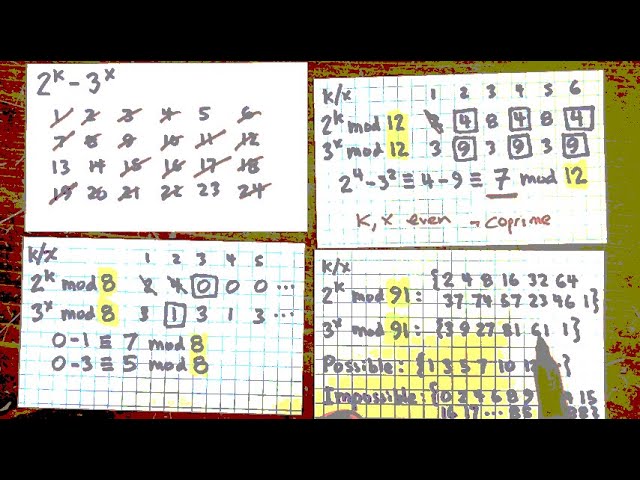 2^k - 3^x
1 2 3 4 5 6
7 8 9 10 11 12
13 14 15 16 17 18
19 20 21 22 23 24
k/x 1 2 3 4 5 6
2^k mod 12 2 4 8 4 8 4
3^x mod 12 3 9 3 9 3 9
2^4-3^2 ≡ 4-9 ≡ 7 mod 12
k, x even → coprime
k/x 1 2 3 4 5
2^k mod 8 2 4 0 0 0 ...
3^x mod 8 3 1 3 1 3 ...
0-1 ≡ 7 mod 8
0-3 ≡ 5 mod 8
k/x
2^k mod 91: {2 4 8 16 32 64
37 74 57 23 46 1}
3^x mod 91: {3 9 27 81 61 1}
Possible: {1 3 5 7 10 }
Impossible: {0 2 4 6 8 9 15
16 17 ... 85 88}